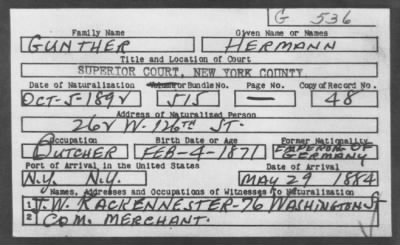 G 536
Family Name Given Name or Names
GUNTHER HERMANN
Title and Location of Court
SUPERIOR COURT, NEW YORK COUNTY
Date of Naturalization Volume or Bundle No. Page No. Copy of Record No.
OCT-5-1892 515 — 48
Address of Naturalized Person
262 W. 126th ST.
Occupation Birth Date or Age Former Nationality
BUTCHER FEB-4-1871 EMPEROR OF GERMANY
Port of Arrival in the United States Date of Arrival
N.Y. N.Y. MAY 29 1884
Names, Addresses and Occupations of Witnesses to Naturalization
1 J. W. KACKENNESTER-76 WASHINGTON ST
2 COM. MERCHANT.